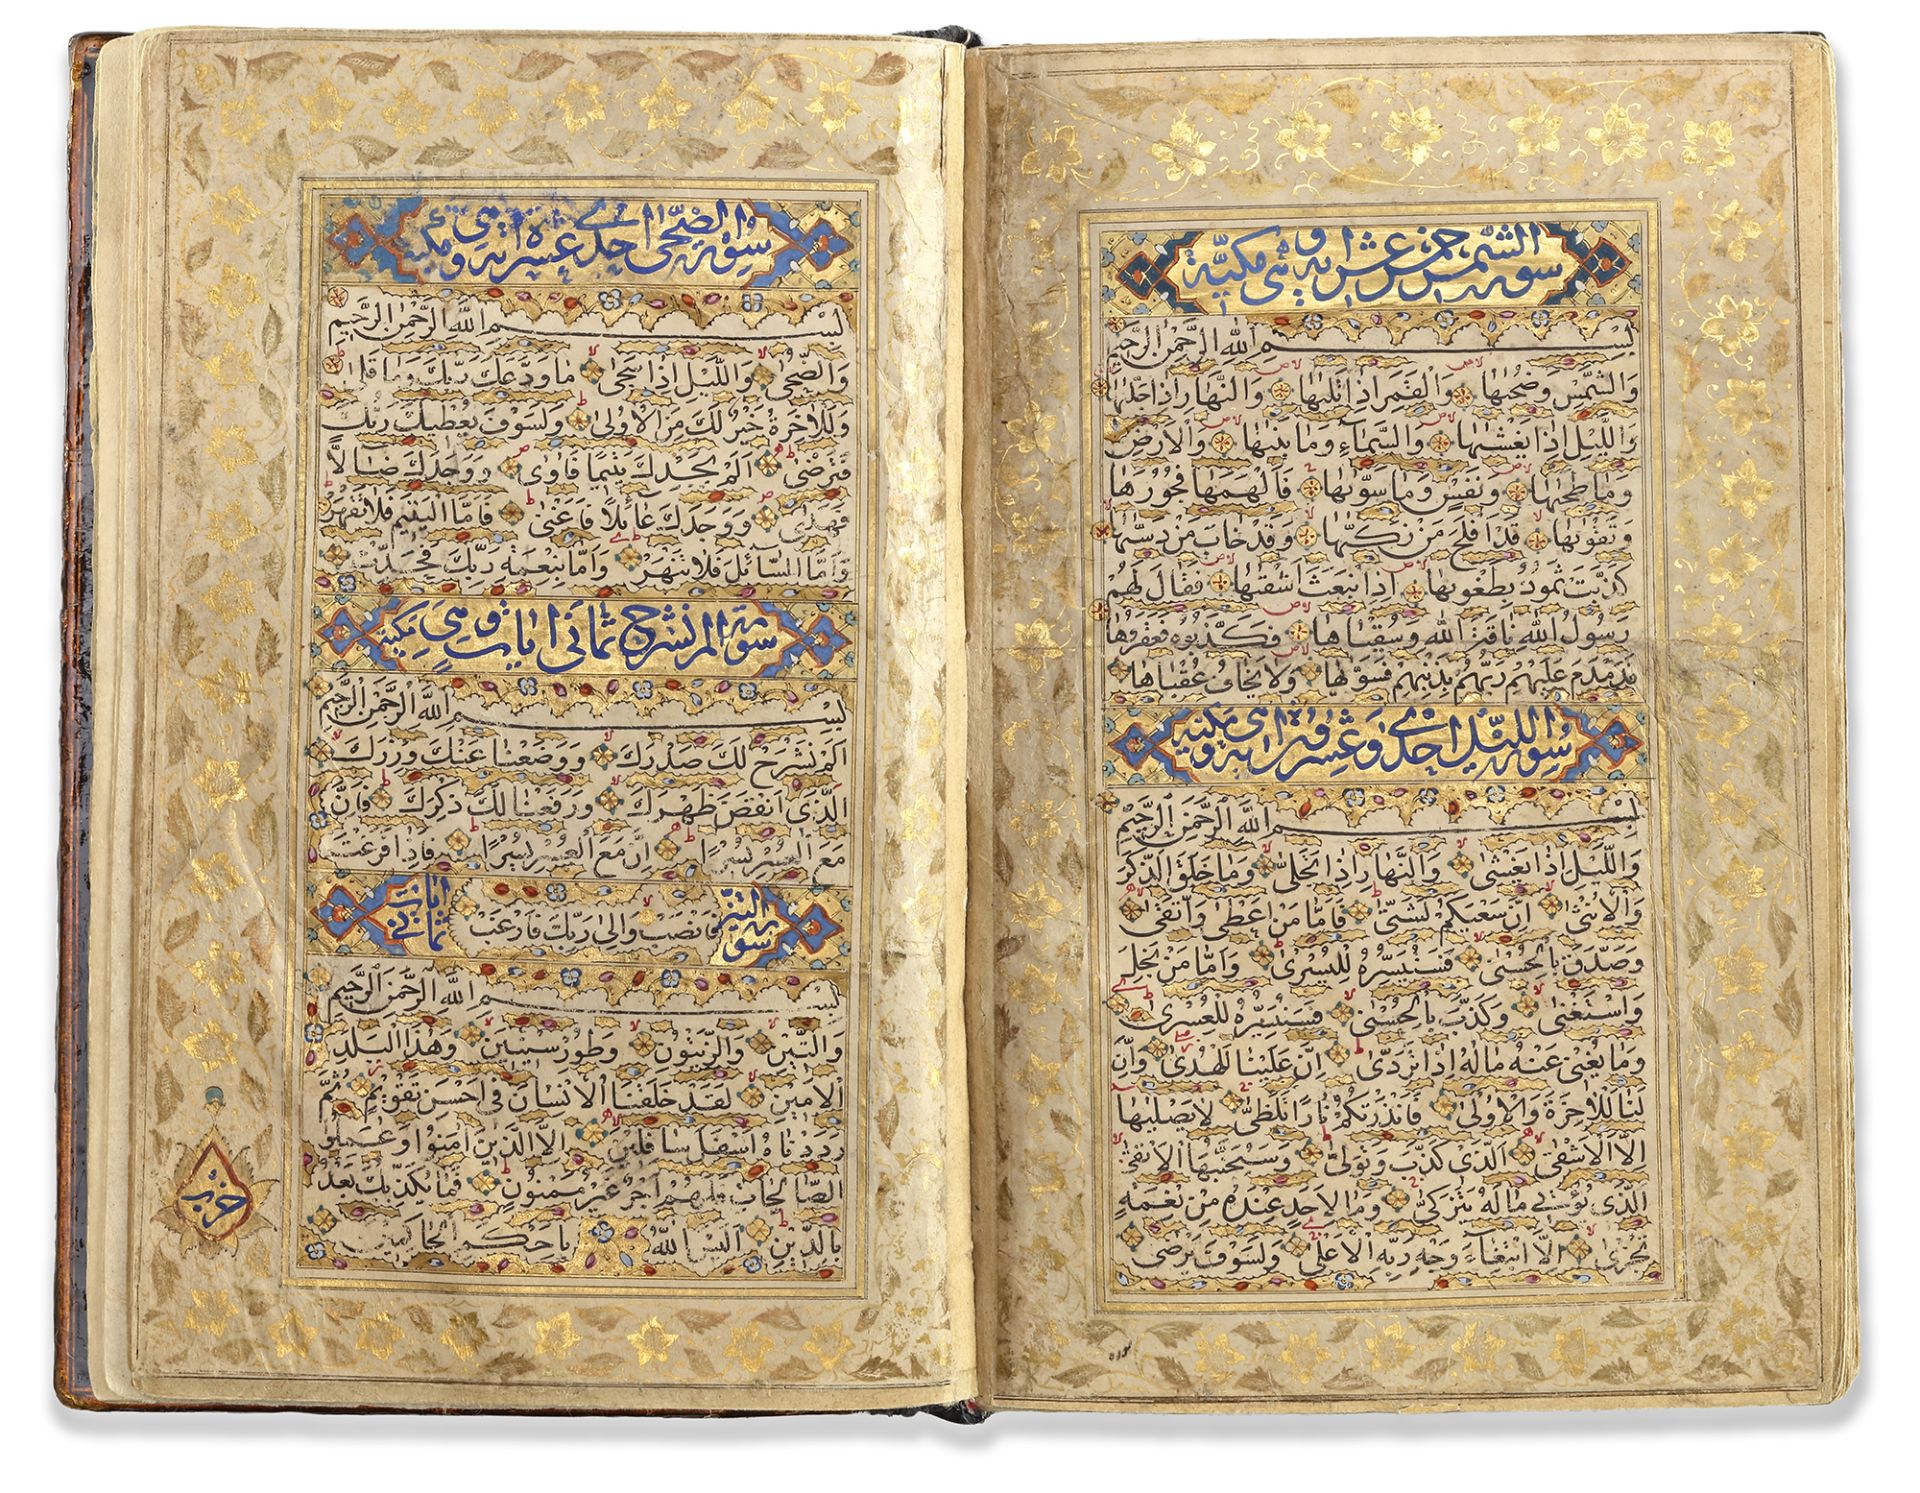 سورة الشمس خمس عشر اية وهي مكية
بسم الله الرحمن الرحيم
والشمس وضحٰىها والقمر اذا تلٰىها والنهار اذا جلٰىها
والليل اذا يغشٰىها والسماء وما بنٰىها والارض
وما طحٰىها ونفس وما سوّٰىها فالهمها فجورها
وتقوٰىها قد افلح من زكّٰىها وقد خاب من دسّٰىها
كذبت ثمود بطغوٰىها اذ انبعث اشقٰىها فقال لهم
رسول الله ناقة الله وسقيٰها فكذبوه فعقروها
فدمدم عليهم ربهم بذنبهم فسوّٰىها ولا يخاف عقبٰها
سورة الليل احدى وعشرون اية وهي مكية
بسم الله الرحمن الرحيم
والليل اذا يغشى والنهار اذا تجلى وما خلق الذكر
والانثى ان سعيكم لشتى فاما من اعطى واتقى
وصدق بالحسنى فسنيسره لليسرى واما من بخل
واستغنى وكذب بالحسنى فسنيسره للعسرى
وما يغني عنه ماله اذا تردى ان علينا للهدى وان
لنا للاخرة والاولى فانذرتكم نارا تلظى لا يصليٰها
الا الاشقى الذي كذب وتولى وسيجنبها الاتقى
الذي يؤتي ماله يتزكى وما لاحد عنده من نعمة
تجزى الا ابتغاء وجه ربه الاعلى ولسوف يرضى
سورة الضحى احدى عشرة اية وهي مكية
بسم الله الرحمن الرحيم
والضحى والليل اذا سجى ما ودعك ربك وما قلى
وللاخرة خير لك من الاولى ولسوف يعطيك ربك
فترضى الم يجدك يتيما فاوى ووجدك ضالا
فهدى ووجدك عائلا فاغنى فاما اليتيم فلا تقهر
واما السائل فلا تنهر واما بنعمة ربك فحدث
سورة الم نشرح ثماني ايات وهي مكية
بسم الله الرحمن الرحيم
الم نشرح لك صدرك ووضعنا عنك وزرك
الذي انقض ظهرك ورفعنا لك ذكرك فان
مع العسر يسرا ان مع العسر يسرا فاذا فرغت
فانصب والى ربك فارغب
سورة التين ثماني ايات
بسم الله الرحمن الرحيم
والتين والزيتون وطور سينين وهذا البلد
الامين لقد خلقنا الانسان في احسن تقويم ثم
رددناه اسفل سافلين الا الذين امنوا وعملوا
الصالحات فلهم اجر غير ممنون فما يكذبك بعد
بالدين اليس الله باحكم الحاكمين
حزب